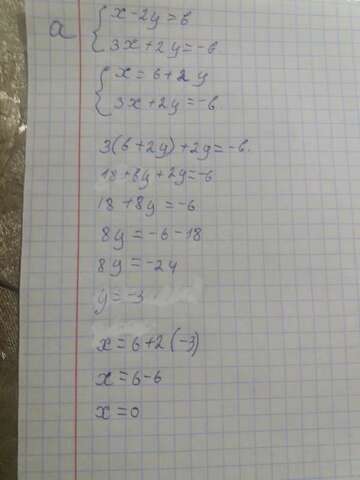 а { x - 2y = 6
3x + 2y = -6
{ x = 6 + 2y
3x + 2y = -6
3(6 + 2y) + 2y = -6
18 + 6y + 2y = -6
18 + 8y = -6
8y = -6 - 18
8y = -24
y = -3
x = 6 + 2(-3)
x = 6 - 6
x = 0